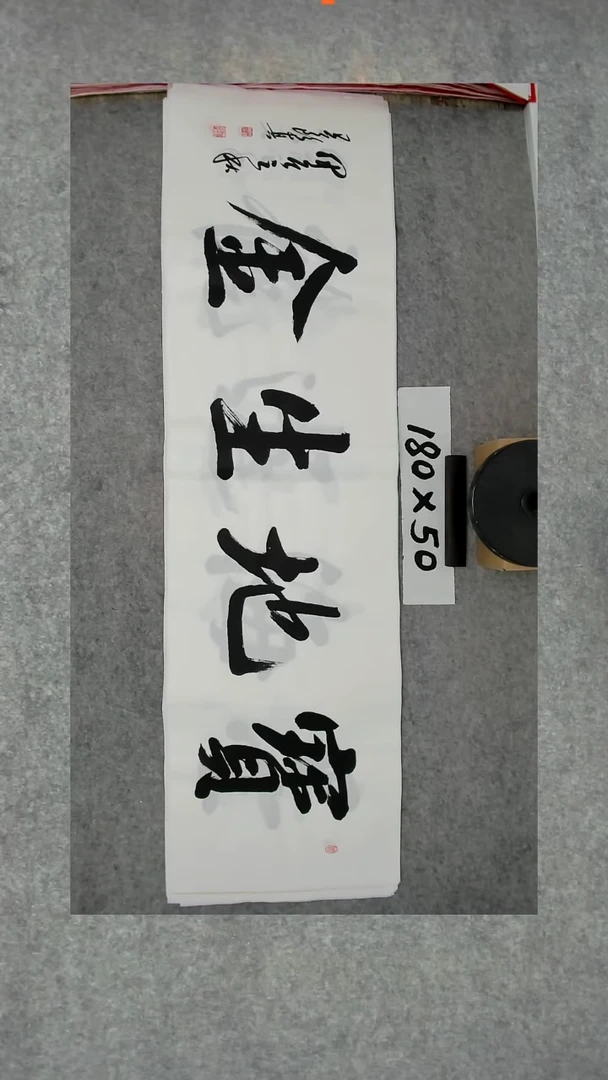 寶地生金
180X50